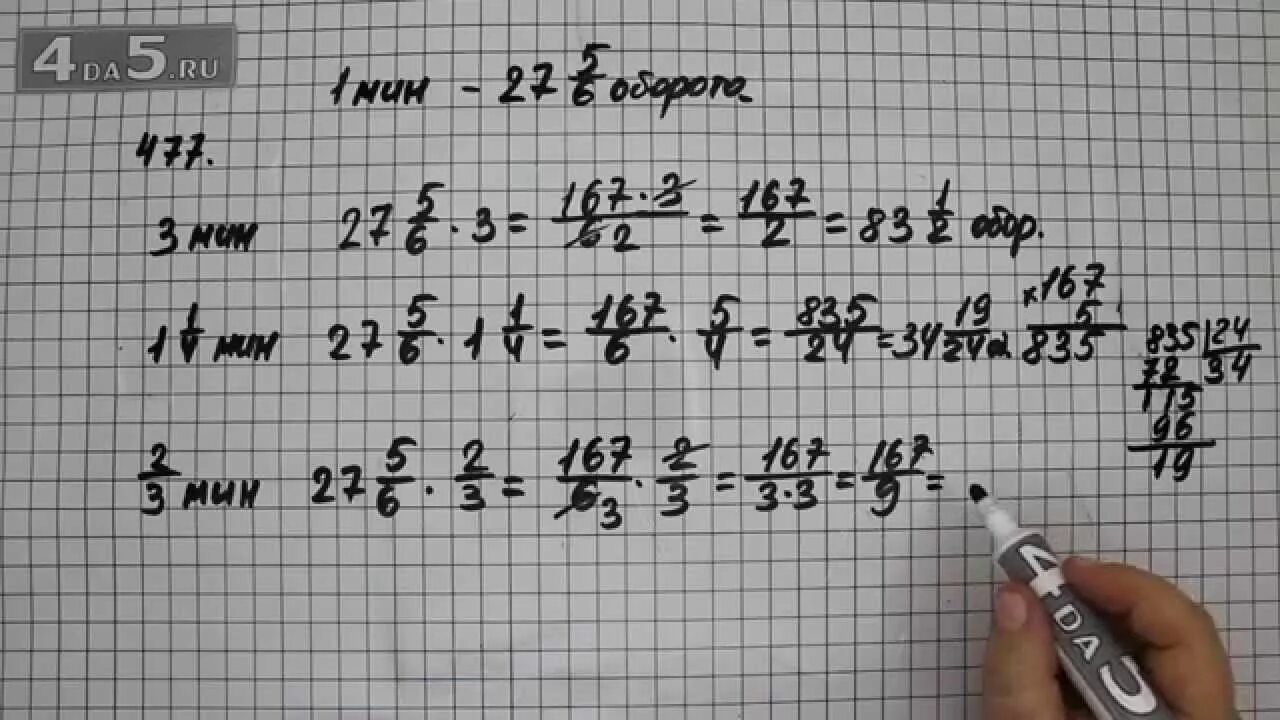 4DA5.RU
1 мин - 27 5/6 оборота
477.
3 мин 27 5/6 · 3 = 167·3/6 2 = 167/2 = 83 1/2 обор.
1 1/4 мин 27 5/6 · 1 1/4 = 167/6 · 5/4 = 835/24 = 34 19/24
×167
5
835
835 24
72 34
115
96
19
2/3 мин 27 5/6 · 2/3 = 167/6 3 · 2/3 = 167/3·3 = 167/9 =
4DA5